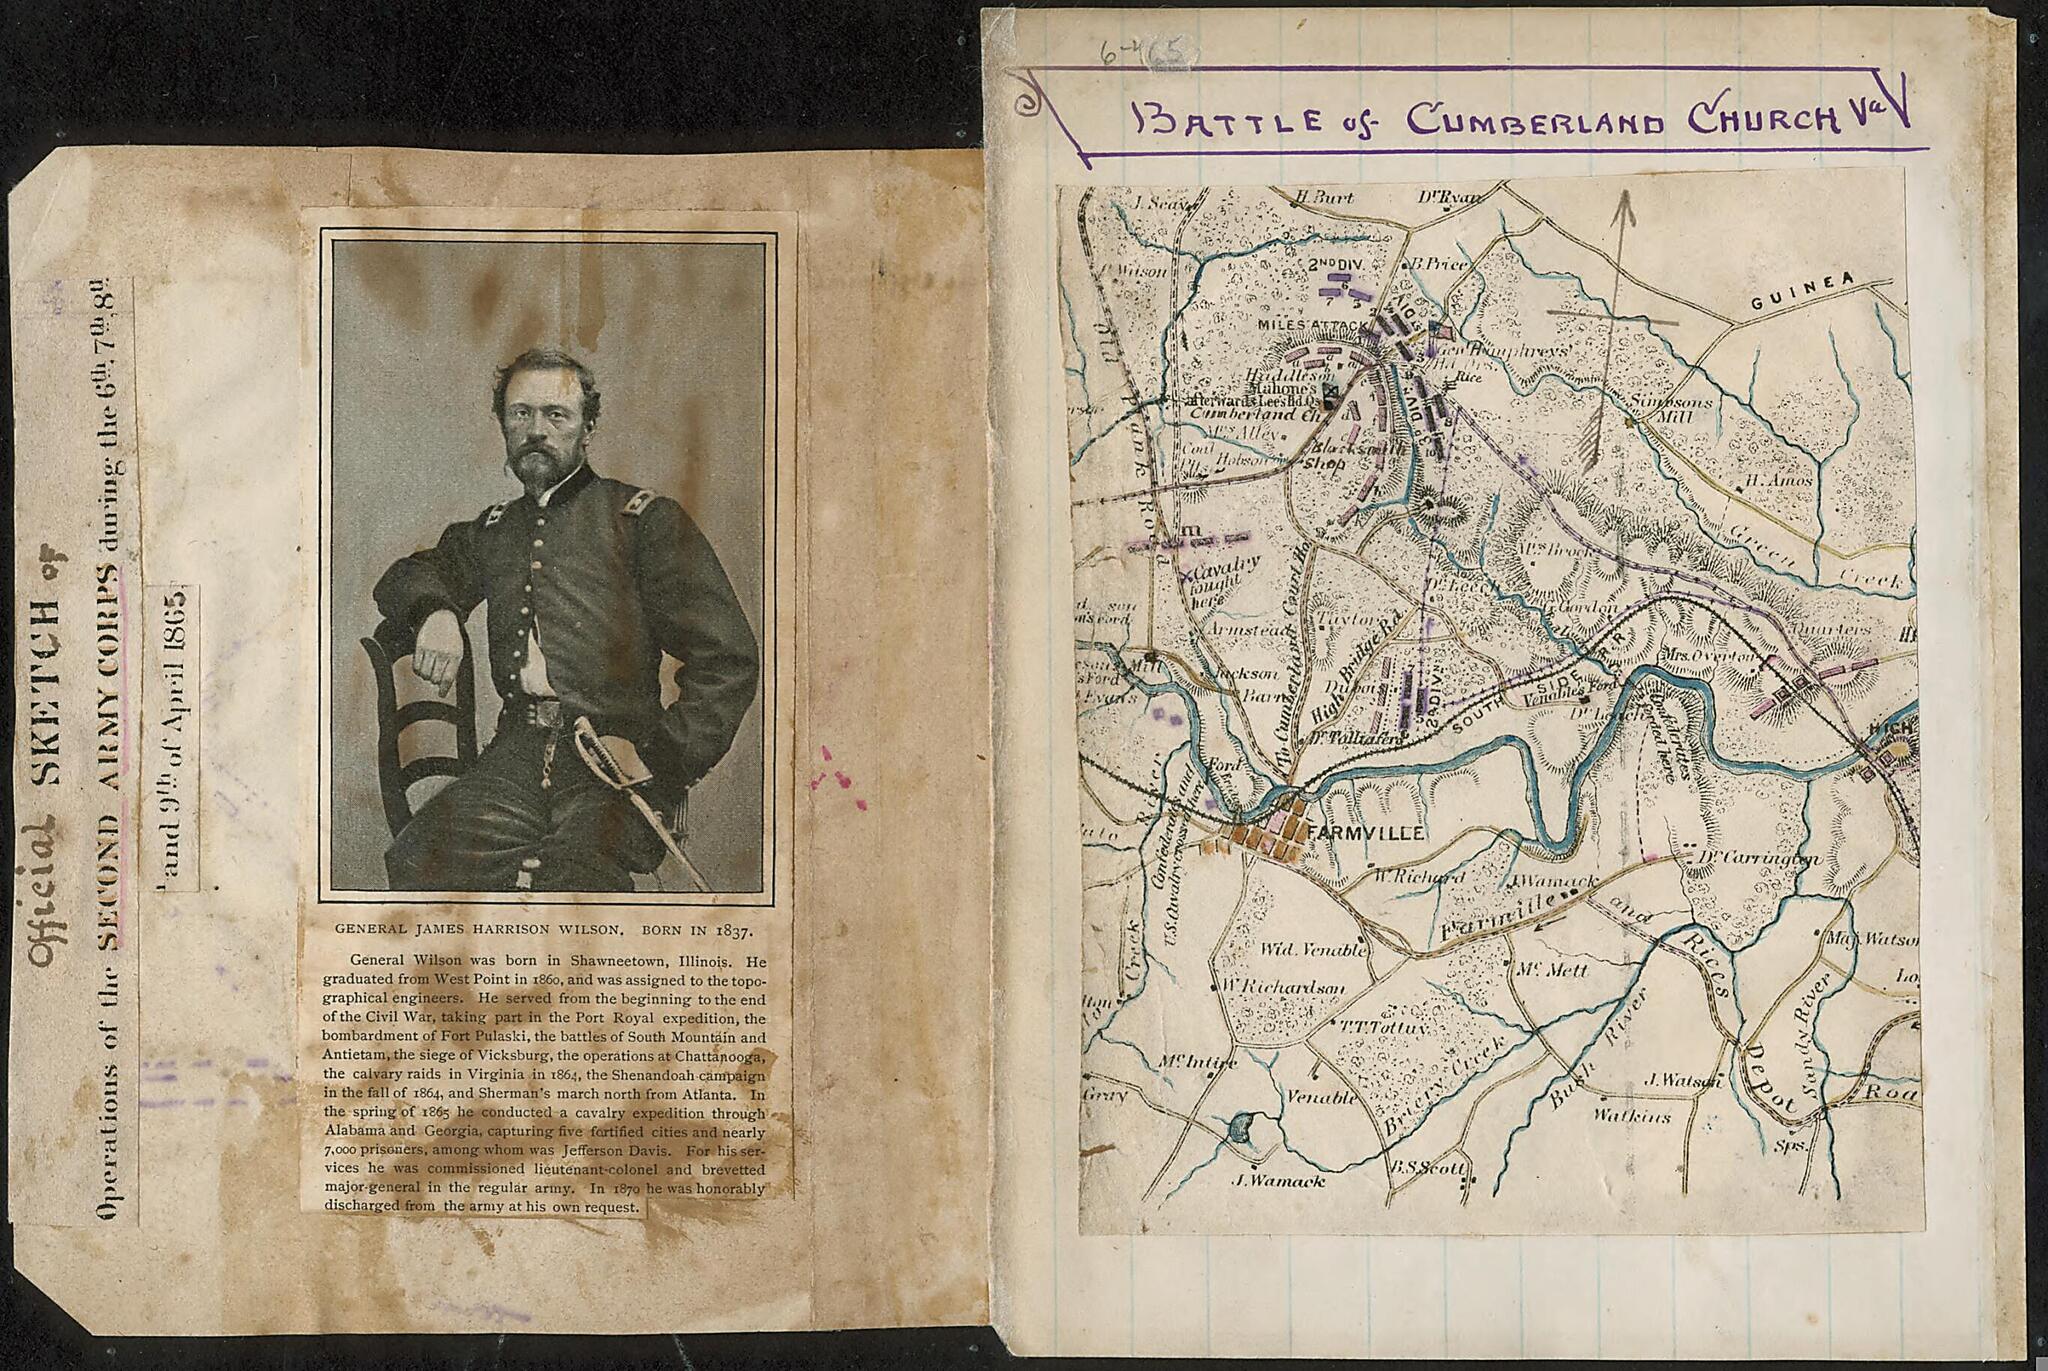 Official SKETCH of
Operations of the SECOND ARMY CORPS during the 6th, 7th, 8th
and 9th of April 1865.
GENERAL JAMES HARRISON WILSON. BORN IN 1837.
General Wilson was born in Shawneetown, Illinois. He
graduated from West Point in 1860, and was assigned to the topo-
graphical engineers. He served from the beginning to the end
of the Civil War, taking part in the Port Royal expedition, the
bombardment of Fort Pulaski, the battles of South Mountain and
Antietam, the siege of Vicksburg, the operations at Chattanooga,
the calvary raids in Virginia in 1864, the Shenandoah campaign
in the fall of 1864, and Sherman's march north from Atlanta. In
the spring of 1865 he conducted a cavalry expedition through
Alabama and Georgia, capturing five fortified cities and nearly
7,000 prisoners, among whom was Jefferson Davis. For his ser-
vices he was commissioned lieutenant-colonel and brevetted
major-general in the regular army. In 1870 he was honorably
discharged from the army at his own request.
BATTLE of CUMBERLAND CHURCH Va
J. Seay
H. Burt
Dr Ryan
Wilson
2ND DIV.
B. Price
GUINEA
MILES ATTACK
Gen Humphreys'
Huddleson
Rice
Mahone's
afterwards Lee's Hd. Qs.
Cumberland Ch.
Simpsons
Mill
Old Plank Road
Mrs Alley
Blacksmith
Shop
Coal
Pits
Hobson
3D DIV.
H. Amos
m
Cavalry
fought
here
Mrs Brock
Green Creek
Gordon
Armstead
Taylor
Quarters
Mill
Jackson
Barn
Mrs. Overton
Evans
To Cumberland Court Ho.
High Bridge Rd.
2D DIV.
SOUTH SIDE R.R.
Venables Ford
Dr Leach
Confederates
forded here
Dr Tolliafers
HIGH
Ford
River
Confederates and
U.S. Cavalry cross there
FARMVILLE
W. Richard
J. Wamack
Dr Carrington
Farmville and Rices Depot Road
Creek
Wid. Venable
Mc Mett
Maj. Watson
W. Richardson
T.T. Tottuy
Bush River
Sandy River
Mc Intire
Briery Creek
J. Watson
Gray
Venable
Watkins
Sps.
J. Wamack
B.S. Scott